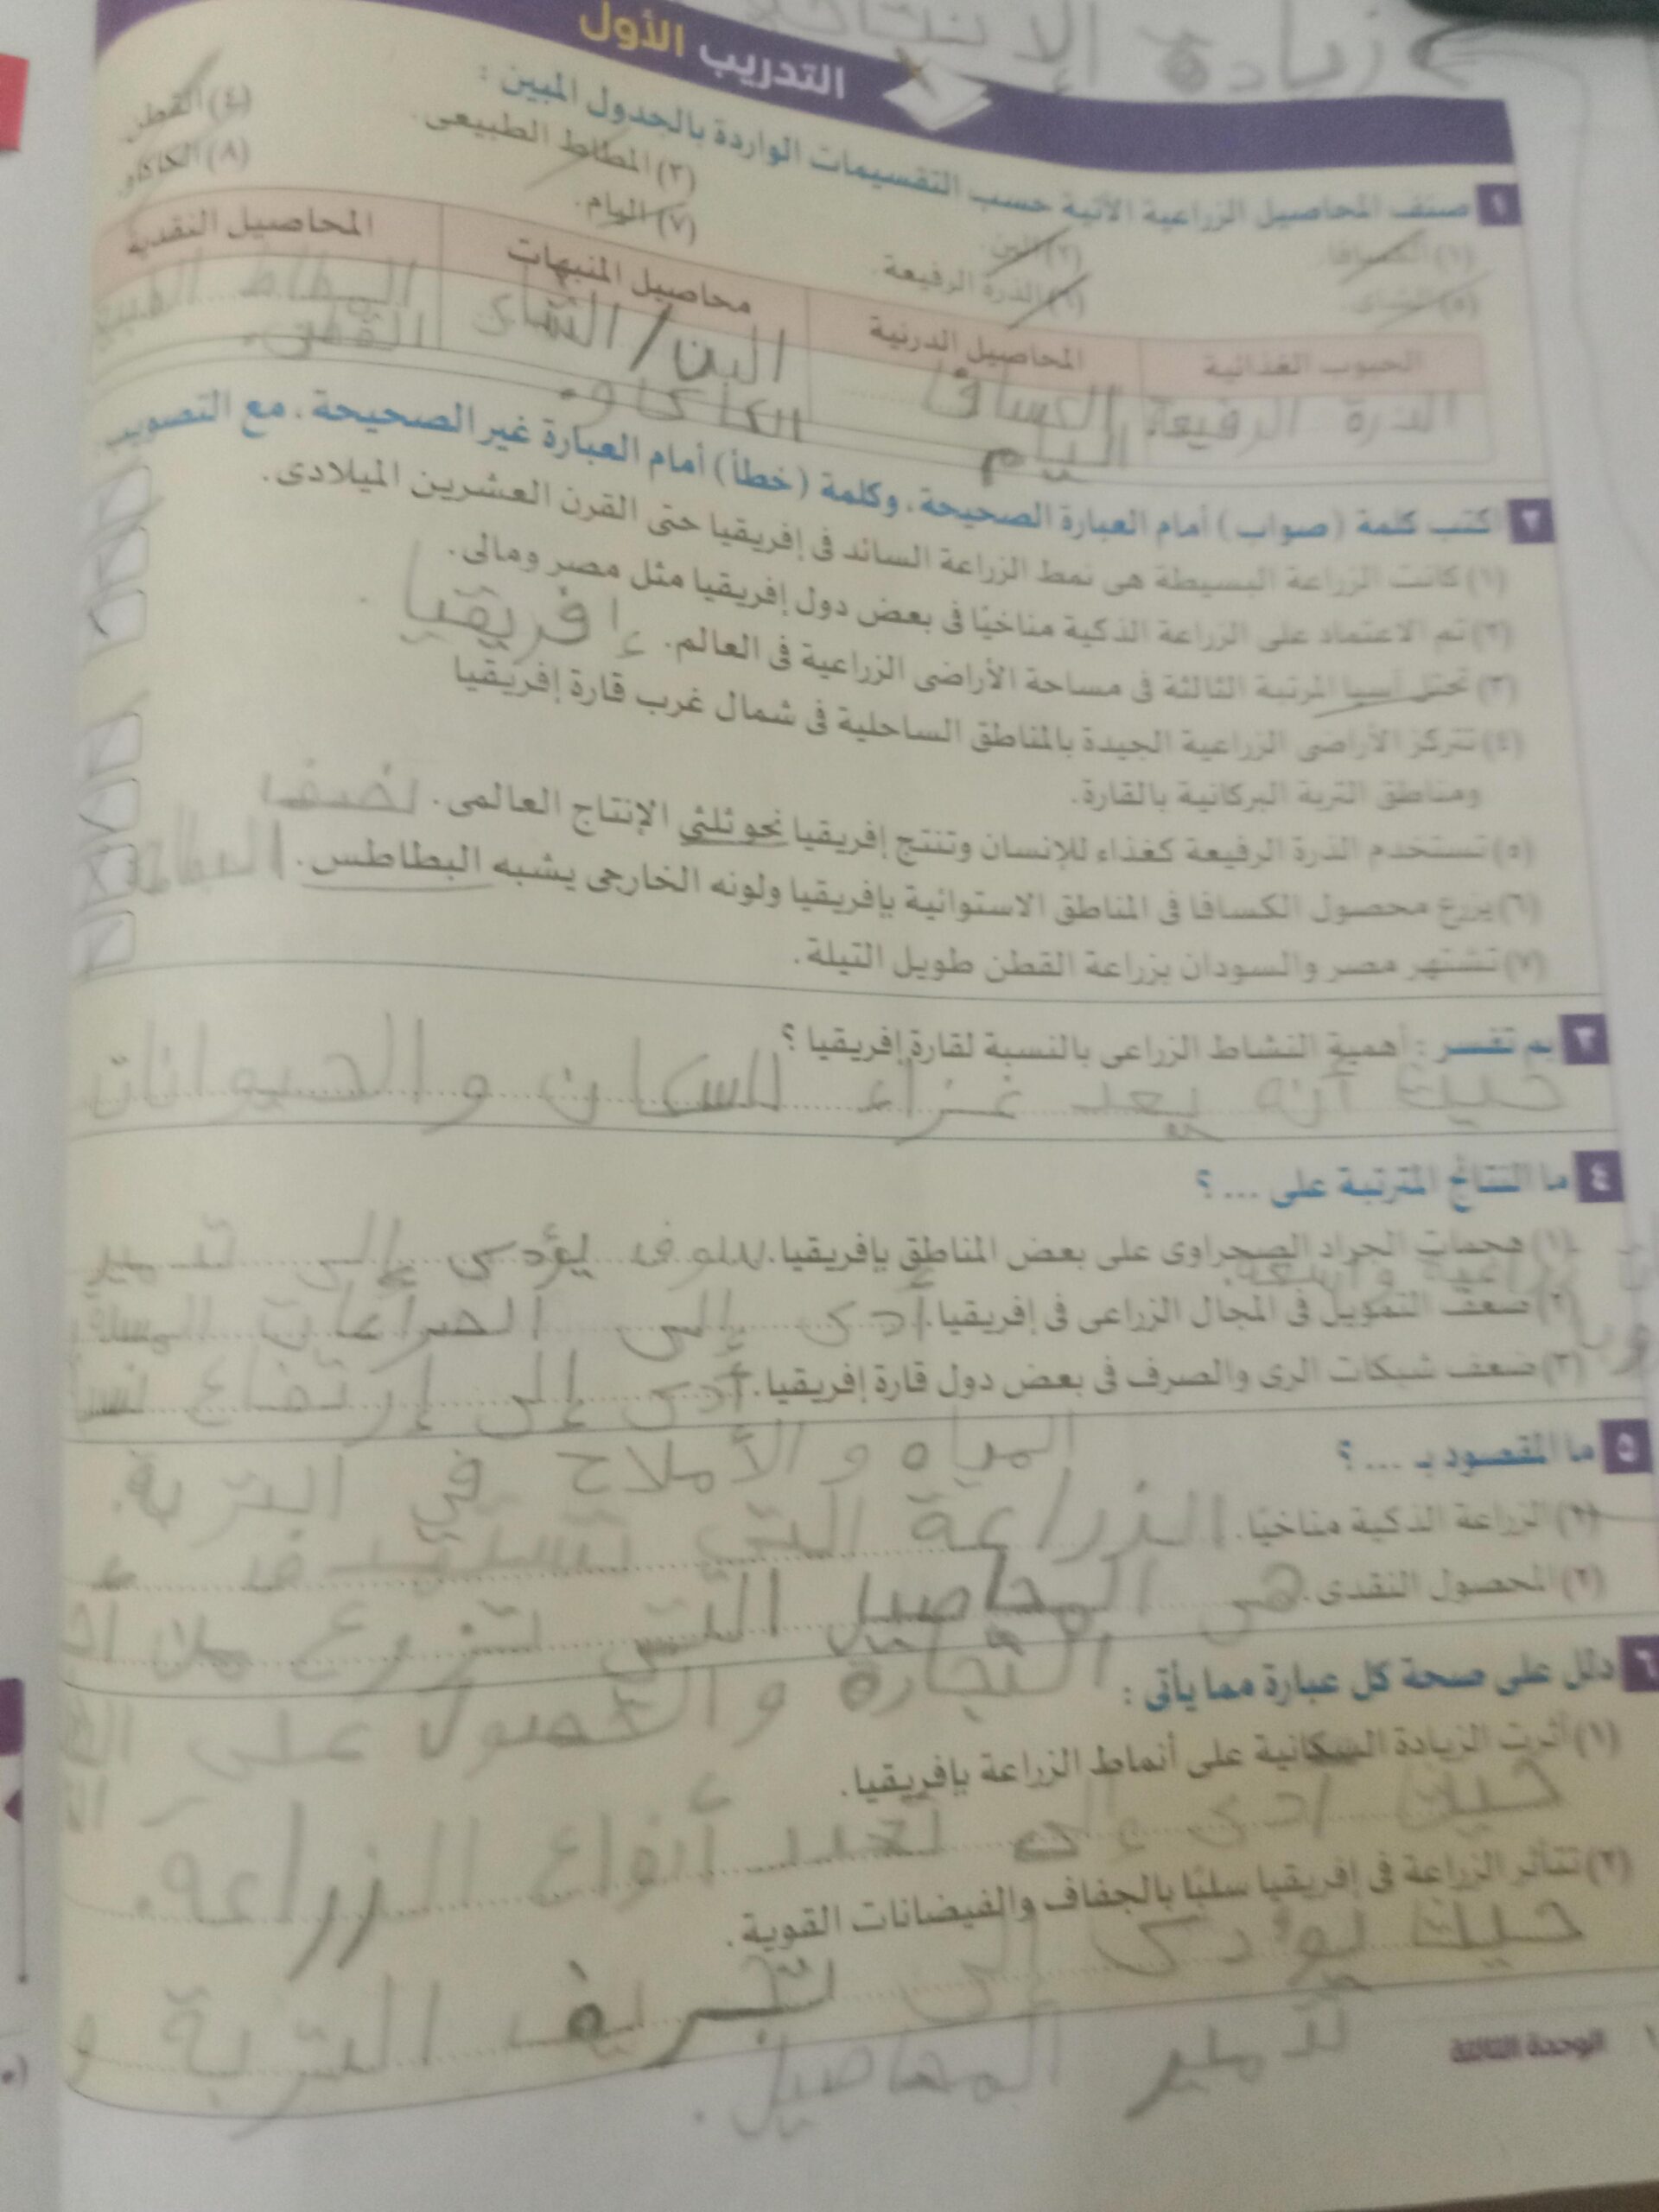 زيادة الإنتاجية
التدريب الأول
١ صنف المحاصيل الزراعية الآتية حسب التقسيمات الواردة بالجدول المبين :
(١) الكسافا. (٢) البن. (٣) المطاط الطبيعى. (٤) القطن.
(٥) الشاى. (٦) الذرة الرفيعة. (٧) اليام. (٨) الكاكاو.
الحبوب الغذائية المحاصيل الدرنية محاصيل المنبهات المحاصيل النقدية
الذرة الرفيعة. الكسافا البن / الشاى المطاط
اليام الكاكاو. القطن.
٢ اكتب كلمة (صواب) أمام العبارة الصحيحة، وكلمة (خطأ) أمام العبارة غير الصحيحة، مع التصويب.
(١) كانت الزراعة البسيطة هى نمط الزراعة السائد فى إفريقيا حتى القرن العشرين الميلادى.
(٢) تم الاعتماد على الزراعة الذكية مناخيًا فى بعض دول إفريقيا مثل مصر ومالى.
(٣) تحتل آسيا المرتبة الثالثة فى مساحة الأراضى الزراعية فى العالم. إفريقيا
(٤) تتركز الأراضى الزراعية الجيدة بالمناطق الساحلية فى شمال غرب قارة إفريقيا
ومناطق التربة البركانية بالقارة.
(٥) تستخدم الذرة الرفيعة كغذاء للإنسان وتنتج إفريقيا نحو ثلثي الإنتاج العالمى.
(٦) يزرع محصول الكسافا فى المناطق الاستوائية بإفريقيا ولونه الخارجى يشبه البطاطس.
(٧) تشتهر مصر والسودان بزراعة القطن طويل التيلة.
٣ بم تفسر : أهمية النشاط الزراعى بالنسبة لقارة إفريقيا ؟
حيث أنه يعد غزاء للسكان و الحيوانات
٤ ما النتائج المترتبة على ... ؟
(١) هجمات الجراد الصحراوى على بعض المناطق بإفريقيا. سوف يؤدى إلى
زراعية واسعة.
(٢) ضعف التمويل فى المجال الزراعى فى إفريقيا. أدى إلى الصراعات
(٣) ضعف شبكات الرى والصرف فى بعض دول قارة إفريقيا. أدى إلى إرتفاع
المياه و الأملاح في التربة.
٥ ما المقصود بـ ... ؟
(١) الزراعة الذكية مناخيًا. الزراعة التي
(٢) المحصول النقدى. هى المحاصيل التى تزرع
التجارة والحصول على
٦ دلل على صحة كل عبارة مما يأتى :
(١) أثرت الزيادة السكانية على أنماط الزراعة بإفريقيا.
حيث أدى إلى تعدد أنواع الزراعة.
(٢) تتأثر الزراعة فى إفريقيا سلبًا بالجفاف والفيضانات القوية.
حيث يؤدى إلى تجريف التربة و
تدمير المحاصيل.
الوحدة الثالثة